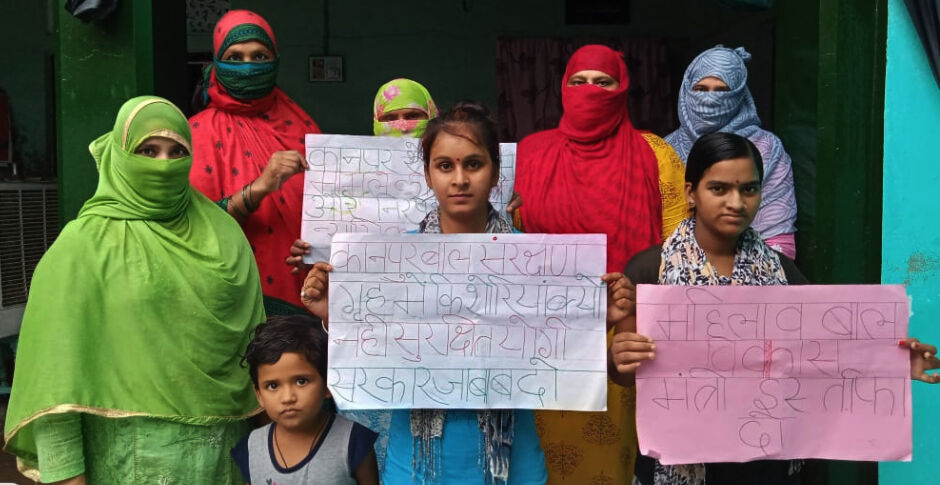 कानपुर
कानपुर बाल संरक्षण
गृह में किशोरियां क्यो
नही सुरक्षित योगी
सरकर जाबब दो
महिला व बाल
विकास
मंत्री इस्तीफ
दो